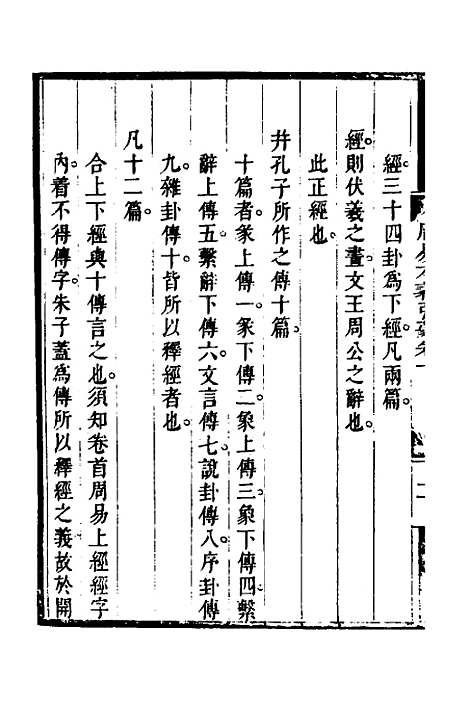 經三十四卦爲下經。凡兩篇。
經。則伏羲之畫。文王周公之辭也。
此正經也。
并孔子所作之傳十篇。
十篇者。彖上傳一。彖下傳二。象上傳三。象下傳四。繫
辭上傳五。繫辭下傳六。文言傳七。說卦傳八。序卦傳
九。雜卦傳十。皆所以釋經者也。
凡十二篇。
合上下經與十傳言之也。須知卷首周易上經經字
內。着不得傳字。朱子蓋爲傳所以釋經之義。故於開